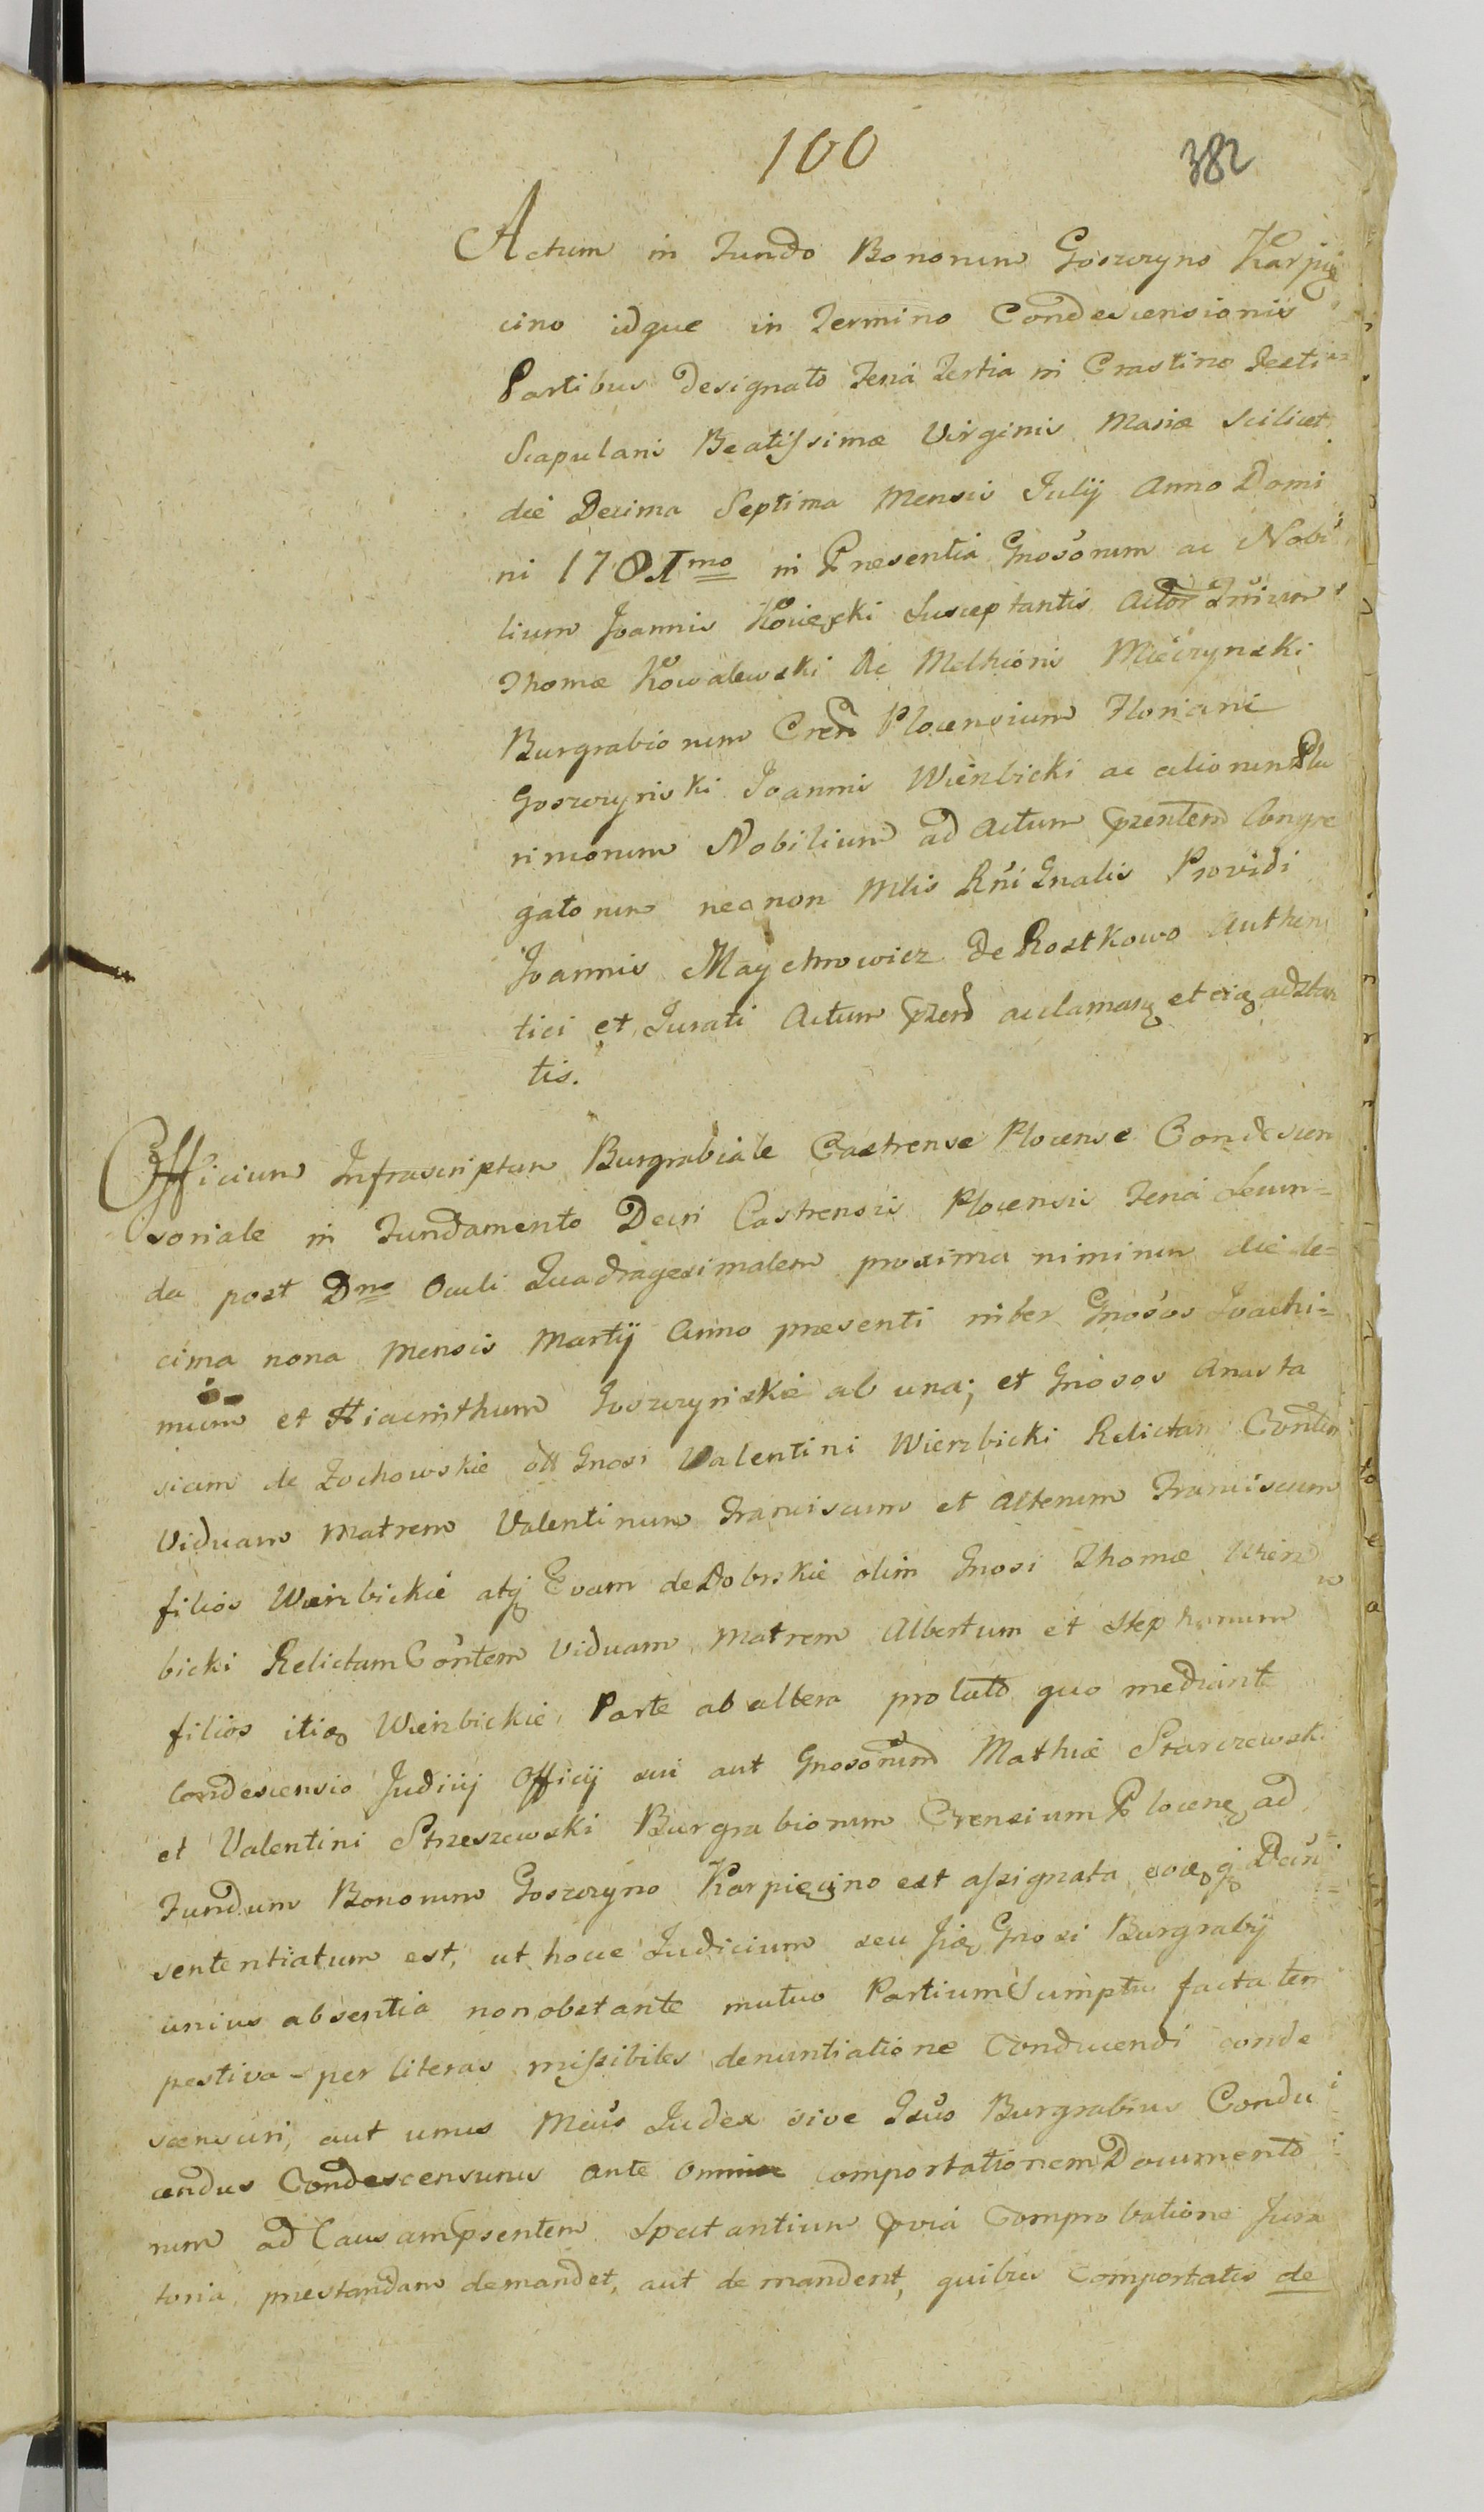 100
382
Actum in Fundo Bonorum Goszczyno Karpię
cino idque in Termino Condescensionis
Partibus designato Feria Tertia in Crastino Festi
Scapularis Beatissimæ Virginis Mariæ scilicet
die Decima Septima Mensis Julij Anno Domi
ni 1781mo in Præsentia Gnosorum ac Nobi
lium Joannis Susceptantis
Thomæ Kowalewski ac Melhioris Mieczynski
Burgrabiorum Cren Plocensium Floriani
Goszczynski Joannis Wierzbicki ac aliorum Plu
rimorum Nobilium ad Actum præntem Congre
gatorum nec non Mlis Rni Gnalis Providi
Joannis Maychrowicz de Rostkowo Authen
tici et Jurati Actum præn acclamanq et eiq adstan
tis.
Officium Infrascriptum Burgrabiale Castrense Plocense Condescen
soriale in Fundamento Decri Castrensis Plocensis Feria Secun=
da post Dnc Oculi Quadragesimalem proxima nimirum die de=
cima nona Mensis Martij Anno præsenti inter Gnosos Joachi=
mum et Hiacinthum Goszczynskie ab una; et Gnosos Anasta
siam de Zochowskie olt Gnosi Valentini Wierzbicki Relictam Conten
Viduam Matrem Valentinum Franciscum et Alterum Franciscum
filios Wierzbickie atq Evam de Dobrskie olim Gnosi Thomæ Wierz
bicki Relictam Contem Viduam Matrem Albertum et Stephanum
filios itiq Wierzbickie Parte ab altera prolato quo mediante
Condescensio Judicij Officij sui aut Gnosorum Mathiæ Starczewski
et Valentini Strzeszewski Burgrabiorum Crensium Plocenq ad
Fundum Bonorum Goszczyno Karpięcino est assignata eoq Decri
sententiatum est, ut hocce Judicium seu Gnosi Burgrabij
unius absentia non obstante mutuo Partium Sumptu facta tem
pestiva per literas missibiles denuntiatione Conducendi conde
scensuri, aut unus Meus Judex sive Burgrabius Condu
cendus Condescensurus ante omnia comportationem Documento
rum ad Causam præsentem Spectantium prvia Comprobatione Jura
toria præstandam demandet, aut demandent, quibus Comportatis de